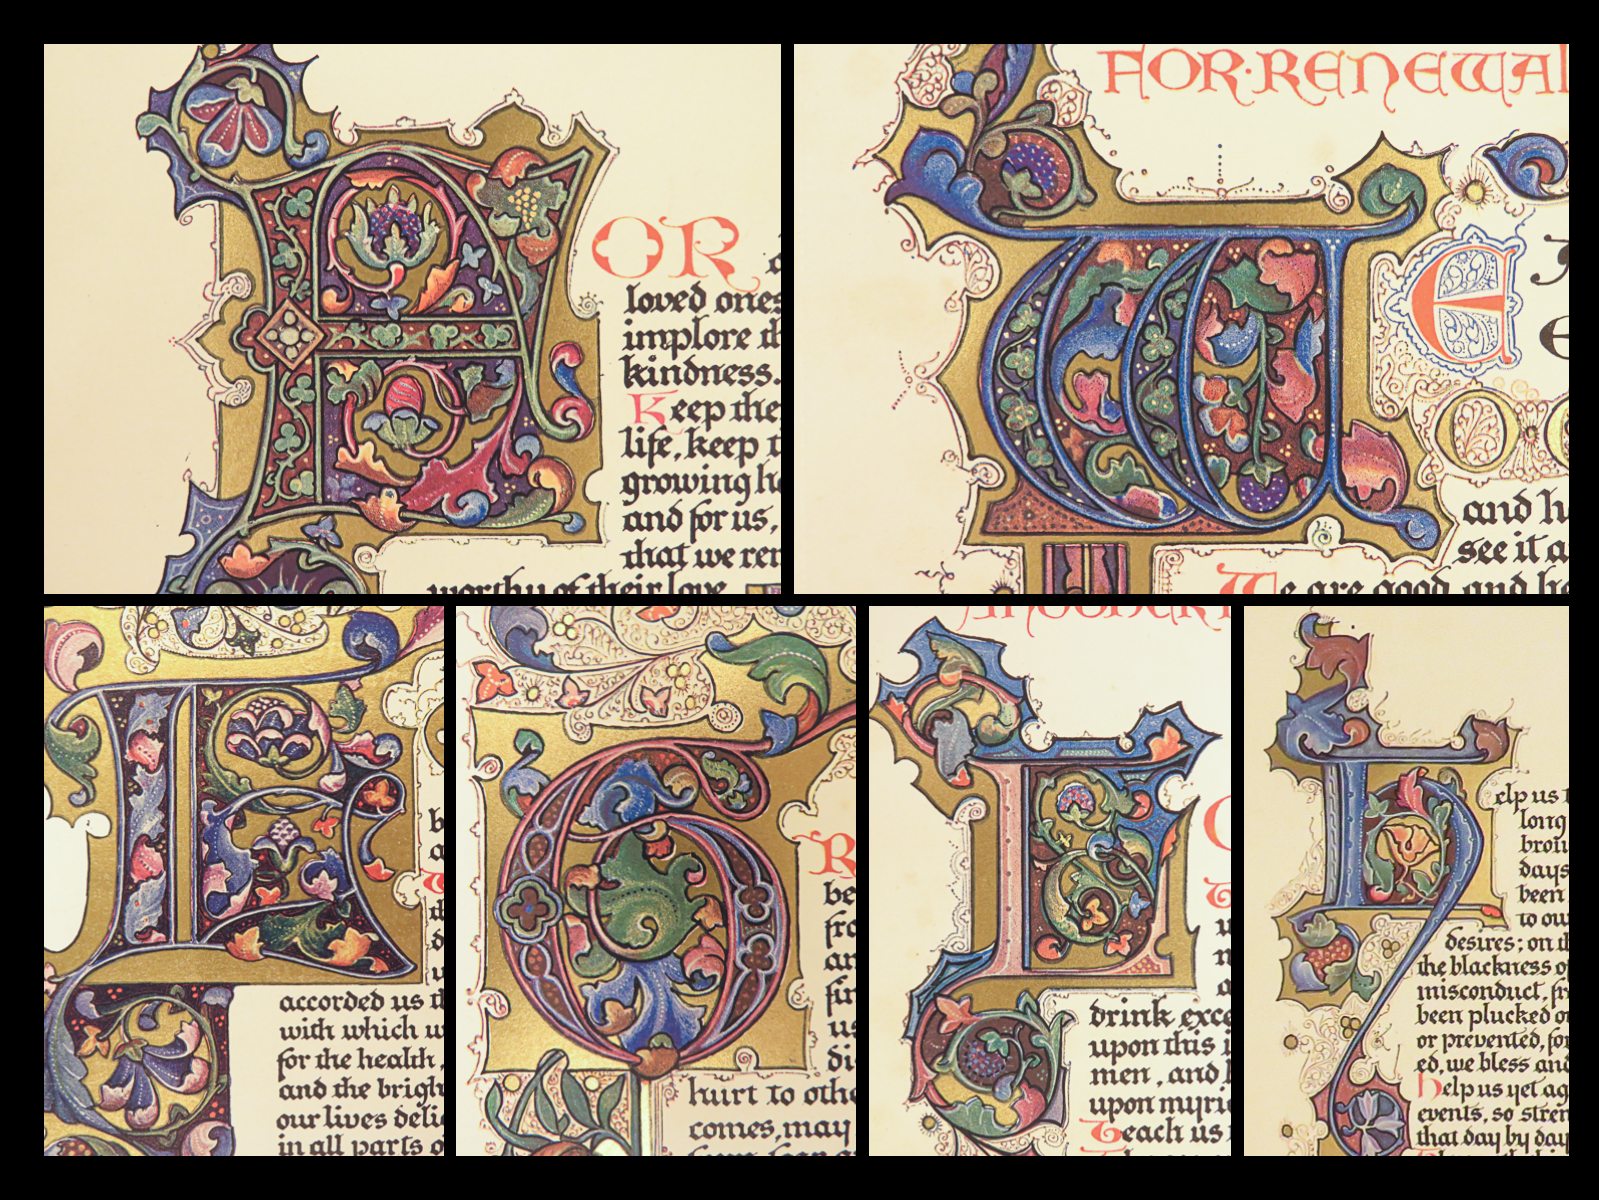 FOR
loved ones
implore th
kindness.
Keep the
life, keep t
growing h
and for us,
that we ren
worthy of their love
FOR·RENEWAL
W E
and h
see it a
We are good, and he
L
b
a
accorded us th
with which w
for the health,
and the brigh
our lives deli
in all parts o
GR
be
fro
an
fin
us
di
hurt to othe
comes, may
L
drink exce
upon this
men, and
upon myri
Teach us
Help us t
long
brou
days
been
to ou
desires; on th
the blackness o
misconduct, fr
been plucked o
or prevented, for
ed, we bless and
help us yet ag
events, so stren
that day by day